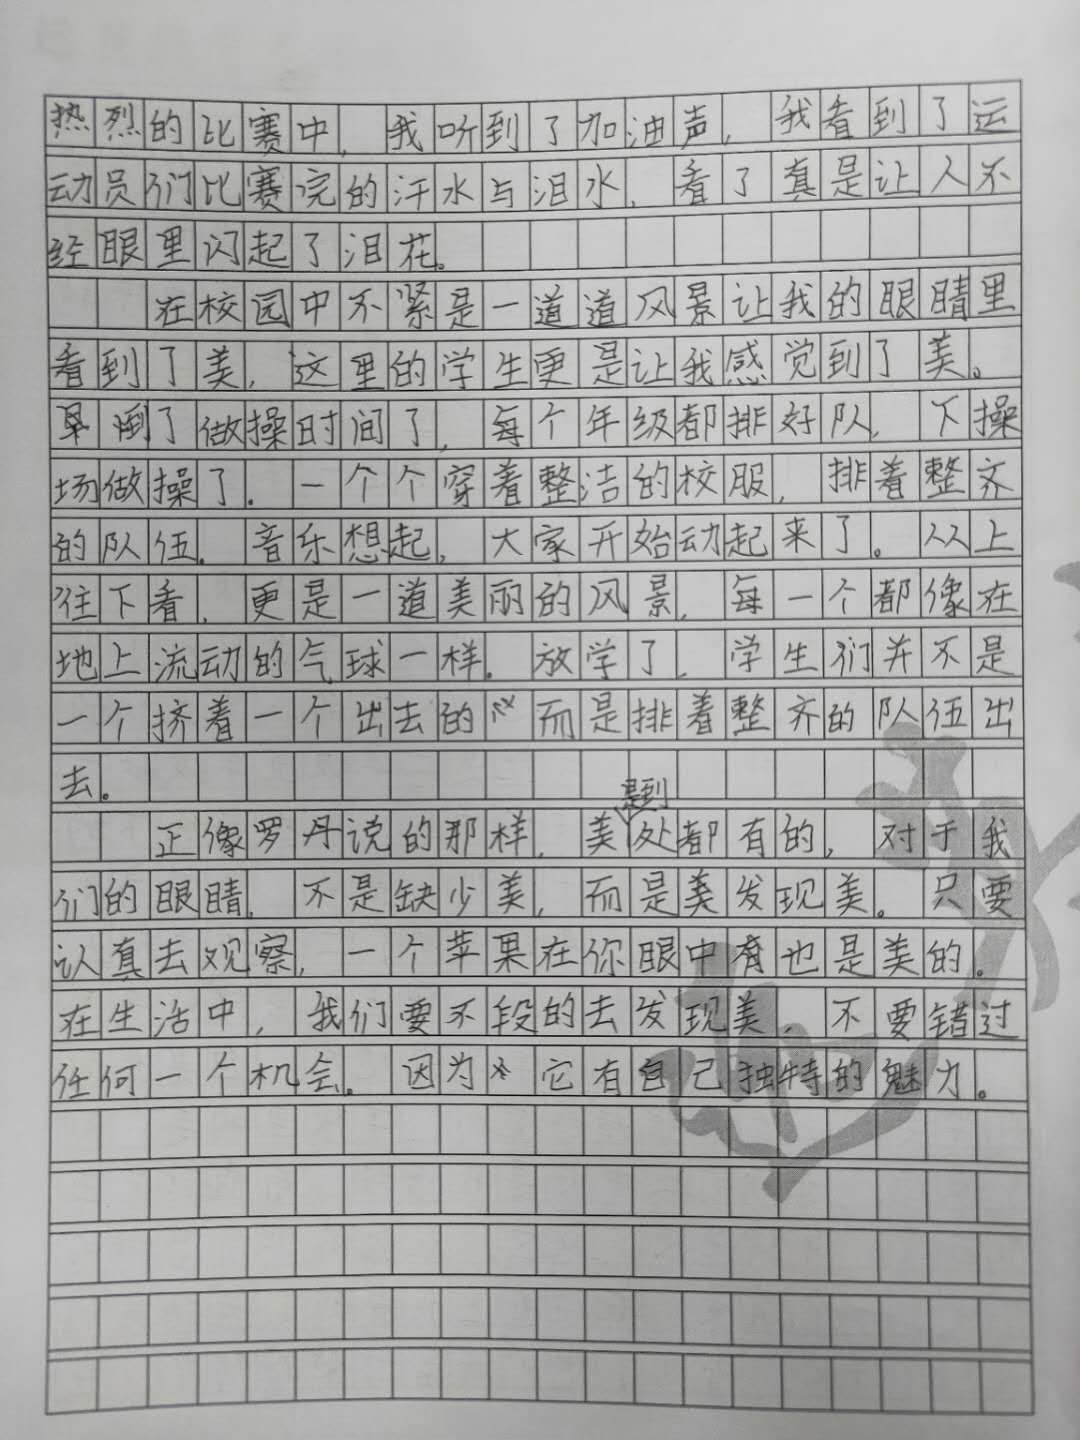 热烈的比赛中，我听到了加油声，我看到了运
动员们比赛完的汗水与泪水，看了真是让人不
经眼里闪起了泪花。
在校园中不紧是一道道风景让我的眼睛里
看到了美，这里的学生更是让我感觉到了美。
到了做操时间了，每个年级都排好队，下操
场做操了。一个个穿着整洁的校服，排着整齐
的队伍。音乐想起，大家开始动起来了。从上
往下看，更是一道美丽的风景，每一个都像在
地上流动的气球一样。放学了，学生们并不是
一个挤着一个出去的 而是排着整齐的队伍出
去。
正像罗丹说的那样，美是到处都有的，对于我
们的眼睛，不是缺少美，而是美发现美。只要
认真去观察，一个苹果在你眼中也是美的。
在生活中，我们要不段的去发现美，不要错过
任何一个机会。因为它有自己独特的魅力。